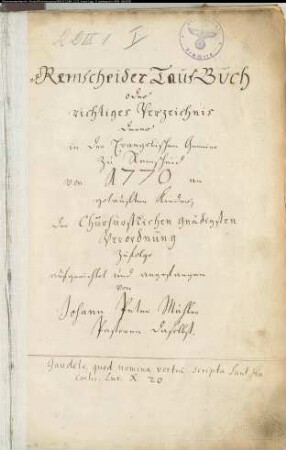 LDII 1 I
Remscheider Tauf Buch
oder
richtiges Verzeichnis
derer
in der Evangelischen Gemeine
zu Remscheid
von 1770 an
getauften Kinder,
der Churfürstlichen gnädigsten
Verordnung
zufolge
aufgerichtet und angefangen
von
Johann Peter
Pastoren daselbst.
Gaudete, quod nomina vestra scripta sunt in
Coelis. Luc. X 20